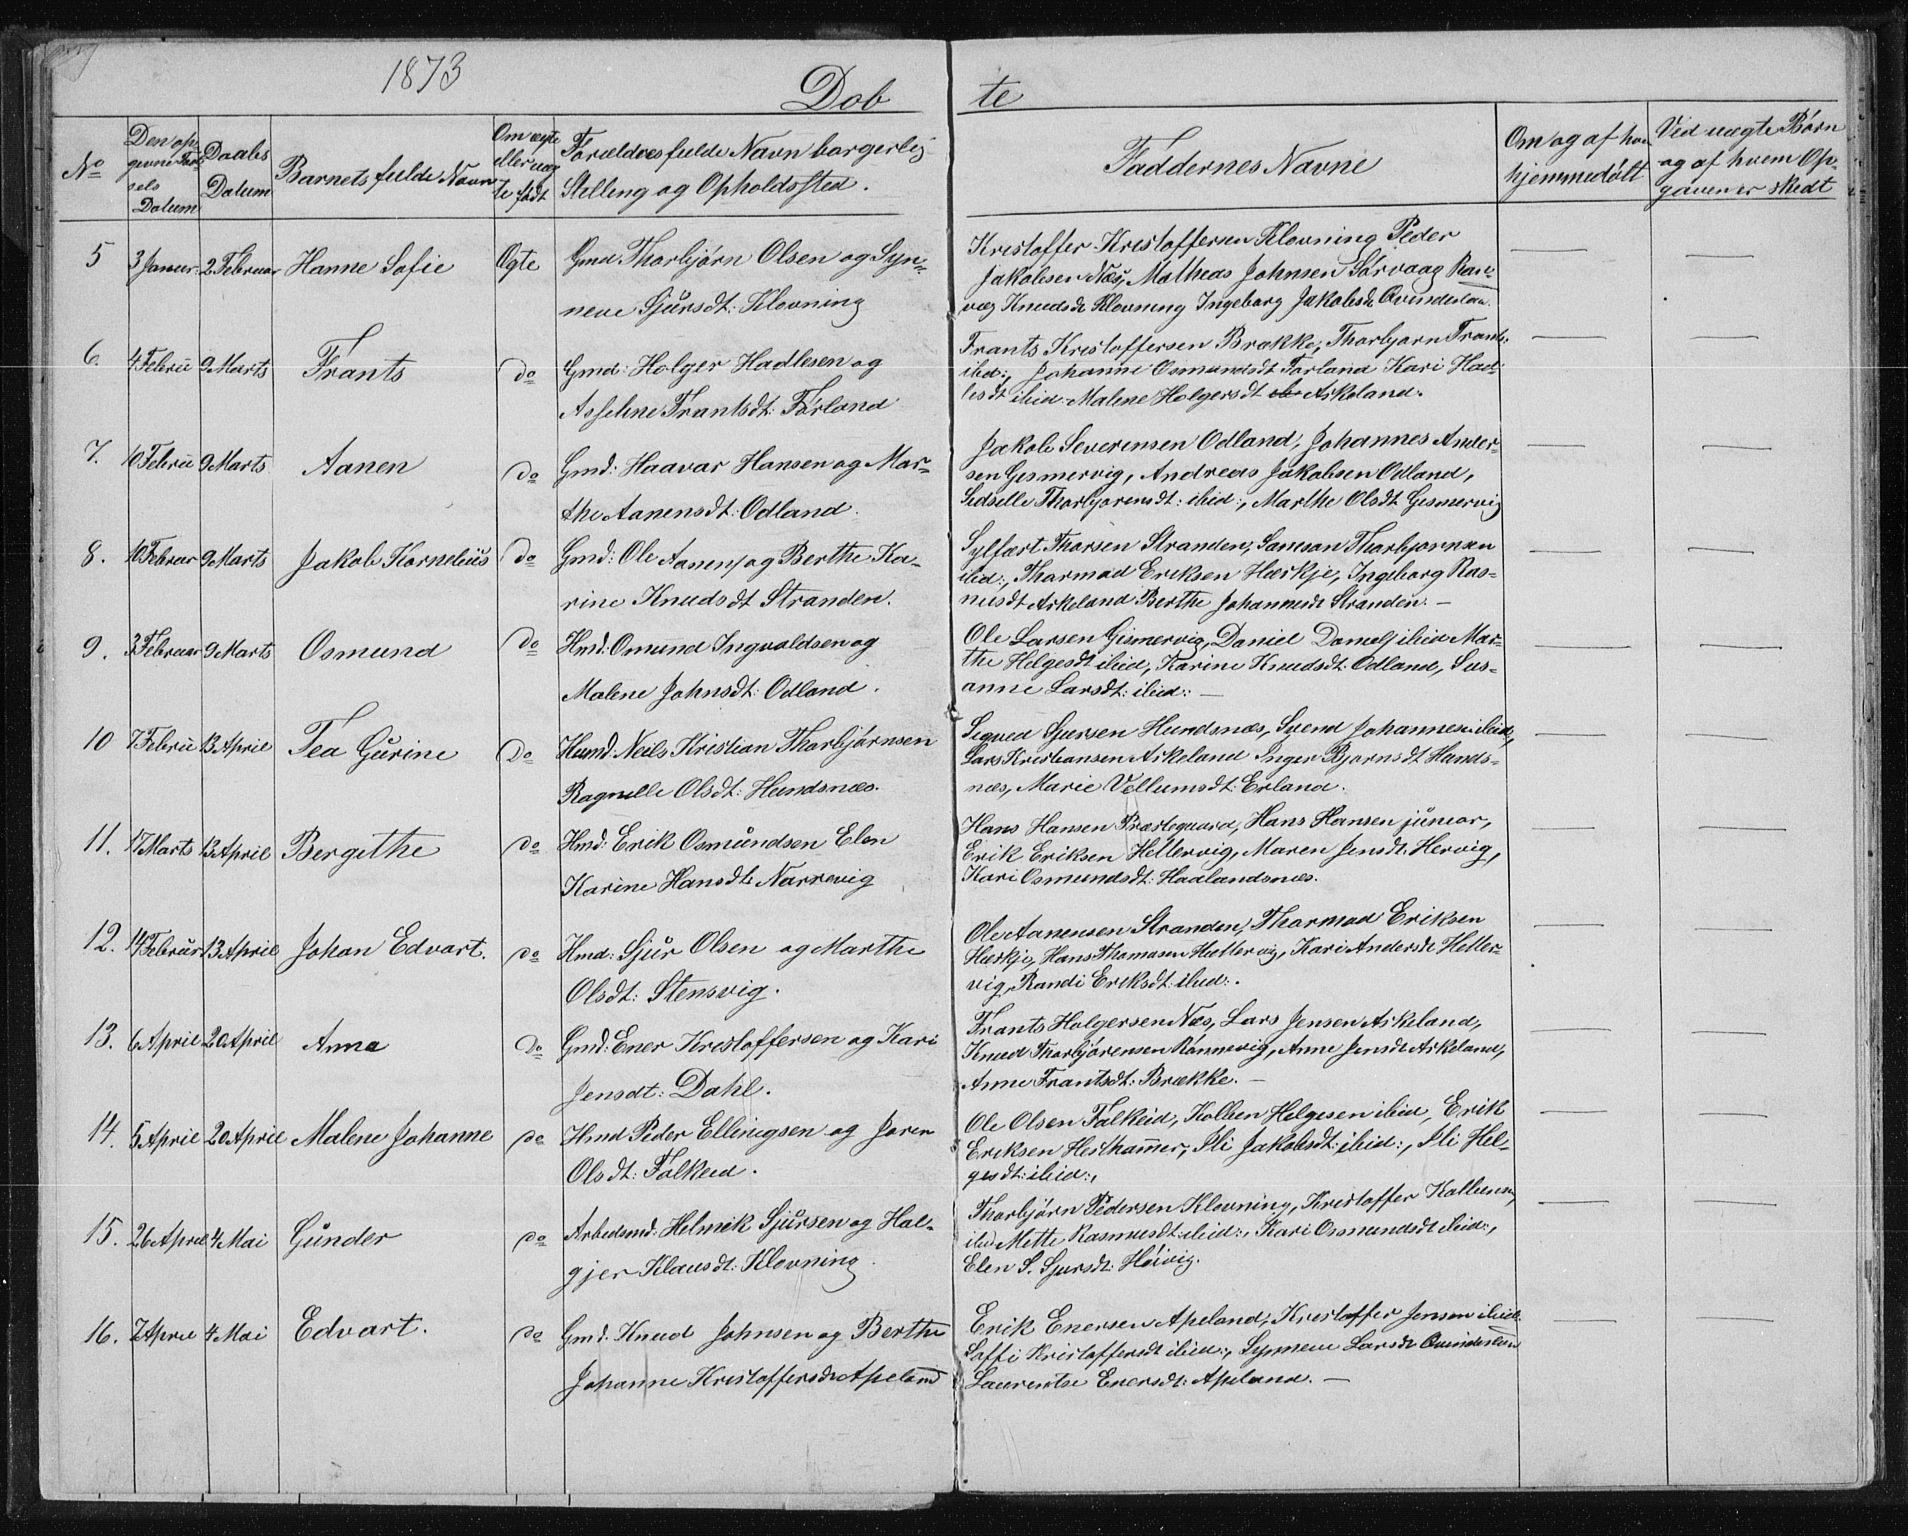 1873
Dob te
No
Den op-
gevne Fød-
sels
Datum
Daabs
Datum
Barnets fulde Navn
Om ægte
eller uæg
te født
Forældres fulde Navn borgerlig
Stelling og Opholdsted.
Faddernes Navne
Om og af hvem
hjemmedøbt
Ved uægte Børn
og af hvem Op-
gaven er skedt
5 3 Januar 2 Februar Hanne Sofie Ogte Gmd Thorbjørn Olsen og Syn-
neve Sjursdt: Klovning
Kristoffer Kristoffersen Klovning Peder
Jakobsen Næs, Matheas Johnsen Sørvaag Ran-
væg Knudsdt Klovning Ingeborg Jakobsdt Qvindesland
6. 4 Febru 9 Marts Frants do Gmd: Holger Hadlesen og
Asseline Frantsdt: Førland
Frants Kristoffersen Brække, Thorbjørn Frants:
ibid:, Johanne Osmundsdt Førland Kari Had-
lesdt ibid: Malene Holgersdt Askeland.
7. 10 Febru 9 Marts Aanen do Gmd: Haavar Hansen og Mar-
the Aanensdt: Odland.
Jakob Severensen Odland, Johannes Ander-
sen Gismervig, Andreas Jakobsen Odland,
Sidselle Thorbjørensdt: ibid:, Marthe Olsdt Gismervig
8. 10 Februar 9 Marts Jakob Kornelius do Gmd: Ole Aanens og Berthe Ka-
rine Knudsdt Stranden.
Sylfæst Thorsen Stranden, Samson Thorbjørnsen
ibid:, Thormod Eriksen Hæskje, Ingeborg Ras-
musdt Askeland Berthe Johannesdt Stranden. —
9. 3 Februar 9 Marts Osmund do Hmd: Omund Ingvaldsen og
Malene Johnsdt: Odland.
Ole Larsen Gismervig, Daniel Daniels ibid Mar-
the Helgesdt ibid, Karine Knudsdt: Odland, Sus-
anne Larsdt: ibid: —
10 7 Febru 13 April Tea Gurine Do Husmd: Neils Kristian Thorbjørnsen
Ragnille Olsdt: Hundsnæs.
Sigved Sjursen Hundsnæs, Svend Johannesen ibid,
Lars Kristiansen Askeland Inger Bjørnsdt Hunds-
næs, Marie Vellumsdt: Erland.
11. 17 Marts 13 April Bergithe do Hmd: Erik Osmundsen Elen
Karine Hansdt: Norrevig
Hans Hansen Præstegaard, Hans Hansen junior,
Erik Eriksen Hettervig, Maren Jensdt: Hervig,
Kari Osmundsdt: Haalandsnæs.
12. 14 Februar 13 April Johan Edvart. do Hmd: Sjur Olsen og Marthe
Olsdt: Stensvig.
Ole Aanensen Stranden, Thormod Eriksen
Hæskje, Hans Thomasen Hettervig, Kari Andersdt Hetter-
vig, Randi Eriksdt: ibid:.
13. 6 April 20 April Anna Do Gmd: Ener Kristoffersen og Kari
Jensdt: Dahl.
Frants Holgersen Næs, Lars Jensen Askeland,
Knud Thorbjørensen Rønnevig, Anne Jensdt Askeland,
Anne Frantsdt: Brække. —
14. 5 April 20 April Malene Johanne do Hmd Peder Ellingsen og Joren
Olsdt: Falkeid.
Ole Olsen Falkeid, Kolben Helgesen ibid, Erik
Eriksen Hesthammer, Sli Jakobsdt: ibid:, Sli Hel-
gesdt: ibid:,
15. 26 April 4 Mai Gunder do Arbedsmd: Helmik Sjursen og Hal-
gjer Klausdt: Klovning.
Thorbjørn Pedersen Klovning, Kristoffer Kolbensen,
ibid. Mette Rasmusdt: ibid:, Kari Osmundsdt ibid:,
Elen S. Sjursdt: Høivig.
16. 7 April 4 Mai Edvart. do Gmd: Knud Johnsen og Berthe
Johanne Kristoffersdt: Apeland
Erik Enersen Apeland, Kristoffer Jensen ibid.
Soffi Kristoffersdt ibid:, Synneve Larsdt Qvindesland
Laurentse Enersdt: Apeland. —